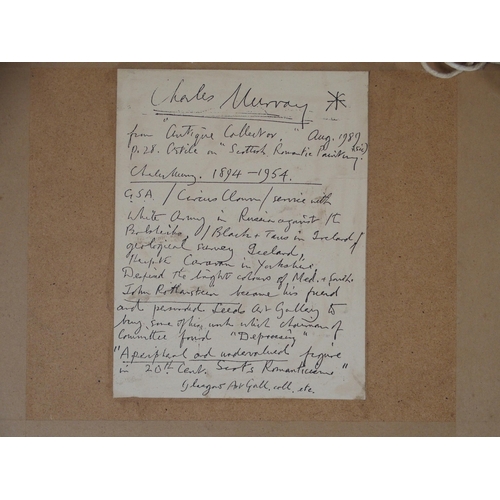 Charles Murray
from "Antique Collector," Aug. 1989
p. 28. Article on "Scottish Romantic Painting" (sic)
Charles Murray. 1894–1954.
GSA / Circus Clown / service with
White Army in Russia against the
Bolsheviks, / Black & Tans in Ireland /
geological survey Iceland,
Caravan in Yorkshire.
the bright colours of Med. & South.
John Rothenstein became his friend
and persuaded Leeds Art Gallery to
buy some of his work which chairman of
Committee found "Depressing"
"A peripheral and undervalued figure
in 20th Cent. Scots Romanticism"
Glasgow Art Gall. coll. etc.